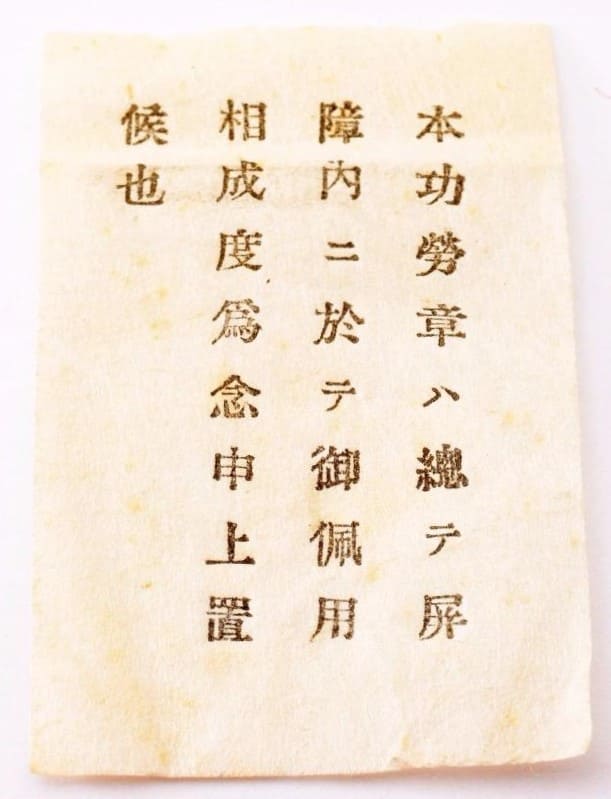 本功勞章ハ總テ屏
障内ニ於テ御佩用
相成度爲念申上置
候也